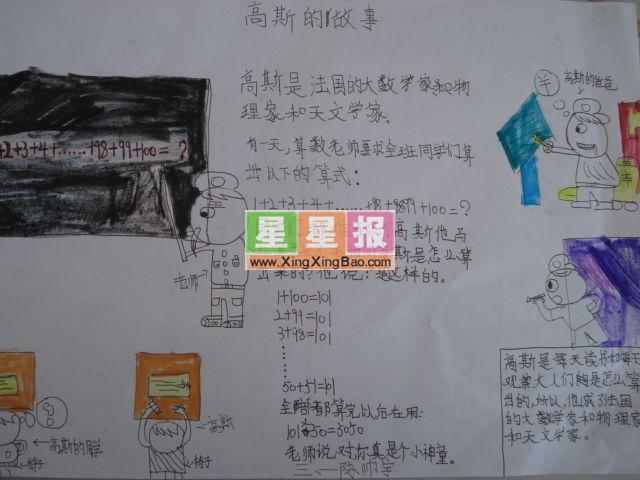 高斯的故事
高斯是法国的大数学家和物
理家和天文学家。
有一天，算数老师要求全班同学们算
出以下的算式：
1+2+3+4+……+98+99+100=?
高斯他马
斯是怎么算
出来的?他说：是这样的。
1+100=101
2+99=101
3+98=101
50+51=101
全部都算完以后在用：
101×50=5050
老师说对你真是个小神童。
三、一陈师宇
+2+3+4+……+98+99+100=?
老师
星星报
www.XingXingBao.com
高斯的爸爸
高斯是每天读书和每天
观察大人们的是怎么算
出的，所以，他成了法国
的大数学家和物理家
和天文学家。
高斯的同学
椅子
高斯
椅子